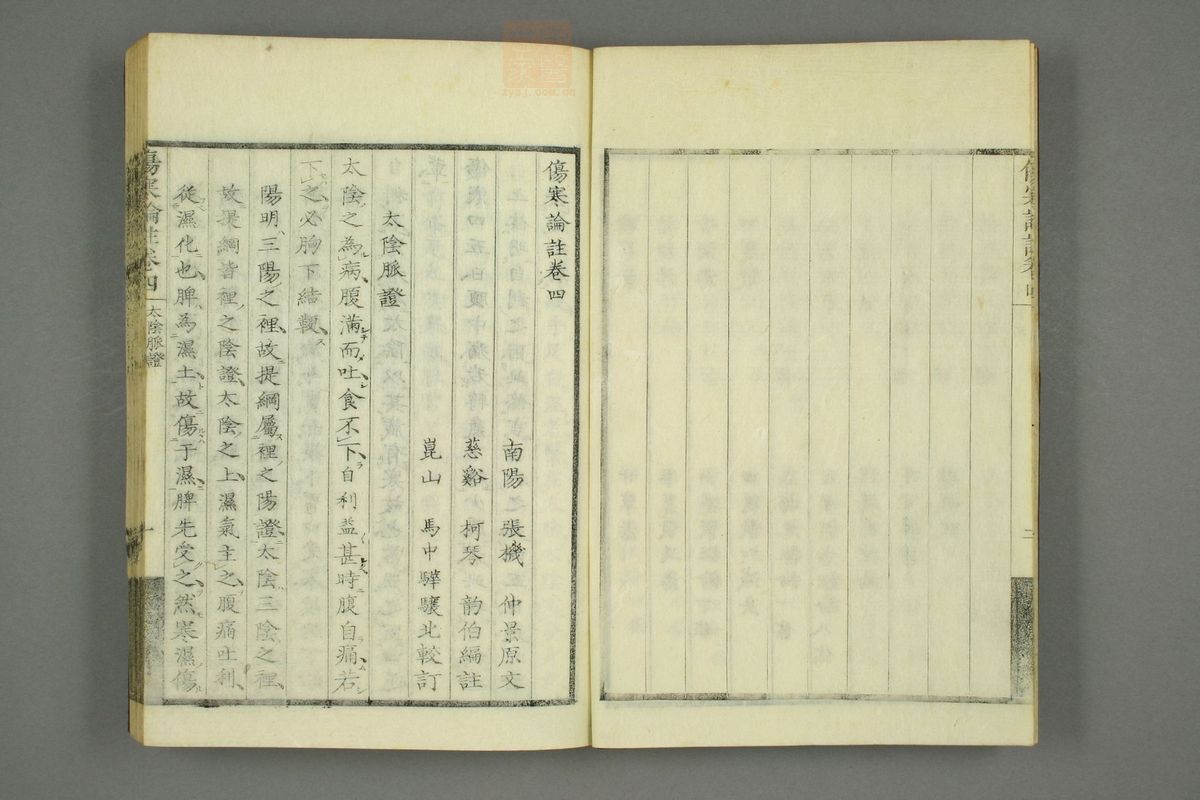 傷寒論註卷四
南陽 張機 仲景原文
慈谿 柯琴 韵伯編註
崑山 馬中驊驤北較訂
太陰脈證
太陰之為病腹滿而吐食不下自利益甚時腹自痛若
下之必胸下結鞕
陽明三陽之裡故提綱屬裡之陽證太陰三陰之裡
故提綱皆裡之陰證太陰之上濕氣主之腹痛吐利
從濕化也脾為濕土故傷于濕脾先受之然寒濕傷
傷寒論註卷四
太陰脈證
zysj.com.cn